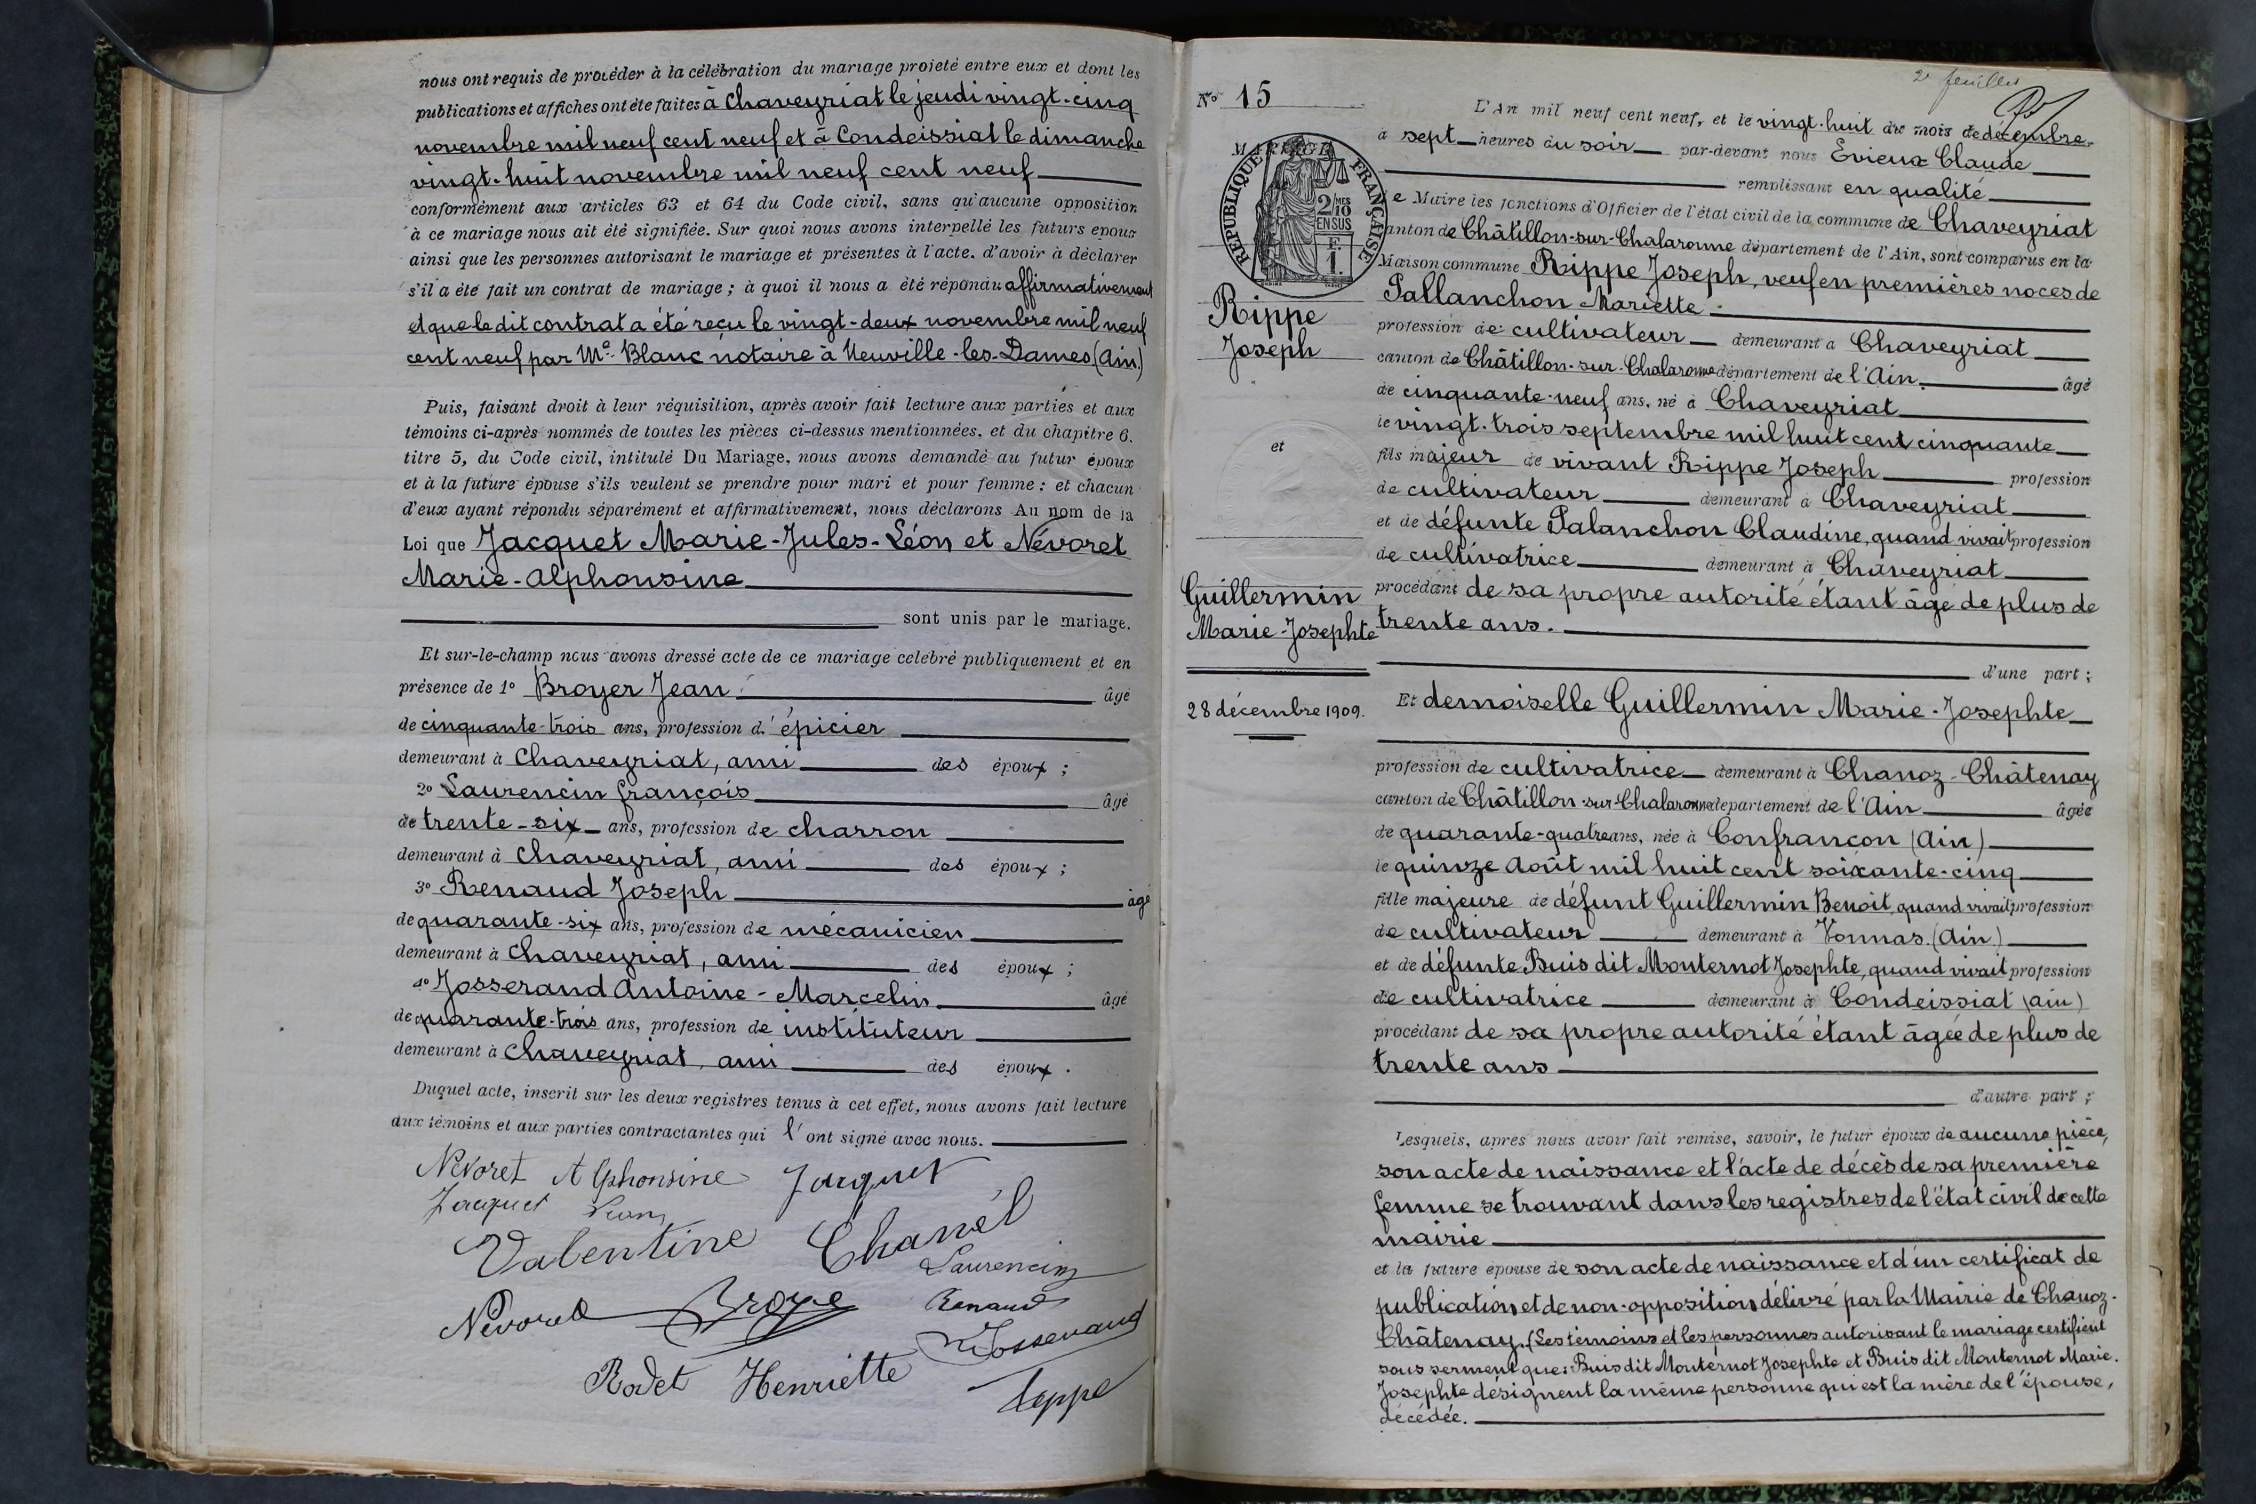 nous ont requis de procéder à la célébration du mariage projeté entre eux et dont les
publications et affiches ont été faites à Chaveyriat le jeudi vingt-cinq
novembre mil neuf cent neuf et à Condeissiat le dimanche
vingt-huit novembre mil neuf cent neuf
conformément aux articles 63 et 64 du Code civil, sans qu'aucune opposition
à ce mariage nous ait été signifiée. Sur quoi nous avons interpellé les futurs époux
ainsi que les personnes autorisant le mariage et présentes à l'acte, d'avoir à déclarer
s'il a été fait un contrat de mariage ; à quoi il nous a été répondu affirmativement
et que le dit contrat a été reçu le vingt-deux novembre mil neuf
cent neuf par Me Blanc notaire à Neuville-les-Dames (Ain)
Puis, faisant droit à leur réquisition, après avoir fait lecture aux parties et aux
témoins ci-après nommés de toutes les pièces ci-dessus mentionnées, et du chapitre 6,
titre 5, du Code civil, intitulé Du Mariage, nous avons demandé au futur époux
et à la future épouse s'ils veulent se prendre pour mari et pour femme : et chacun
d'eux ayant répondu séparément et affirmativement, nous déclarons Au nom de la
Loi que Jacquet Marie-Jules-Léon et Névoret
Marie-Alphonsine
sont unis par le mariage.
Et sur-le-champ nous avons dressé acte de ce mariage célébré publiquement et en
présence de 1° Broyer Jean âgé
de cinquante-trois ans, profession d'épicier
demeurant à Chaveyriat, ami des époux ;
2° Laurencin François âgé
de trente-six ans, profession de charron
demeurant à Chaveyriat, ami des époux ;
3° Renaud Joseph âgé
de quarante-six ans, profession de mécanicien
demeurant à Chaveyriat, ami des époux ;
4° Josserand Antoine-Marcelin âgé
de quarante-trois ans, profession de instituteur
demeurant à Chaveyriat, ami des époux.
Duquel acte, inscrit sur les deux registres tenus à cet effet, nous avons fait lecture
aux témoins et aux parties contractantes qui l'ont signé avec nous.
Névoret Alphonsine Jacquet
Jacquet Léon
Valentine Chanél
Laurencin
Névoret Broye Renaud
Josserand
Rodet Henriette
Teppe
2e feuillet
N° 15
L'An mil neuf cent neuf, et le vingt-huit du mois de décembre,
à sept heures du soir par-devant nous Evieux Claude
remplissant en qualité
de Maire les fonctions d'Officier de l'état civil de la commune de Chaveyriat
canton de Châtillon-sur-Chalaronne département de l'Ain, sont comparus en la
Maison commune Rippe Joseph, veuf en premières noces de
Pallanchon Mariette
profession de cultivateur demeurant à Chaveyriat
canton de Châtillon-sur-Chalaronne département de l'Ain, âgé
de cinquante-neuf ans, né à Chaveyriat
le vingt-trois septembre mil huit cent cinquante
fils majeur de vivant Rippe Joseph profession
de cultivateur demeurant à Chaveyriat
et de défunte Palanchon Claudine, quand vivait profession
de cultivatrice demeurant à Chaveyriat
procédant de sa propre autorité étant âgé de plus de
trente ans.
d'une part ;
MARIAGE
RÉPUBLIQUE FRANÇAISE
2/10 MES
EN SUS
F.
1.
Rippe
Joseph
et
Guillermin
Marie-Josephte
28 décembre 1909.
Et demoiselle Guillermin Marie-Josephte
profession de cultivatrice demeurant à Chanoz-Châtenay
canton de Châtillon-sur-Chalaronne département de l'Ain âgée
de quarante-quatre ans, née à Confrançon (Ain)
le quinze Août mil huit cent soixante-cinq
fille majeure de défunt Guillermin Benoit, quand vivait profession
de cultivateur demeurant à Vonnas (Ain)
et de défunte Buis dit Monternot Josephte, quand vivait profession
de cultivatrice demeurant à Condeissiat (ain)
procédant de sa propre autorité étant âgée de plus de
trente ans
d'autre part ;
Lesquels, après nous avoir fait remise, savoir, le futur époux de aucune pièce,
son acte de naissance et l'acte de décès de sa première
femme se trouvant dans les registres de l'état civil de cette
mairie
et la future épouse de son acte de naissance et d'un certificat de
publication et de non-opposition délivré par la Mairie de Chanoz-
Châtenay. (Les témoins et les personnes autorisant le mariage certifient
sous serment que : Buis dit Monternot Josephte et Buis dit Monternot Marie-
Josephte désignent la même personne qui est la mère de l'épouse,
décédée.